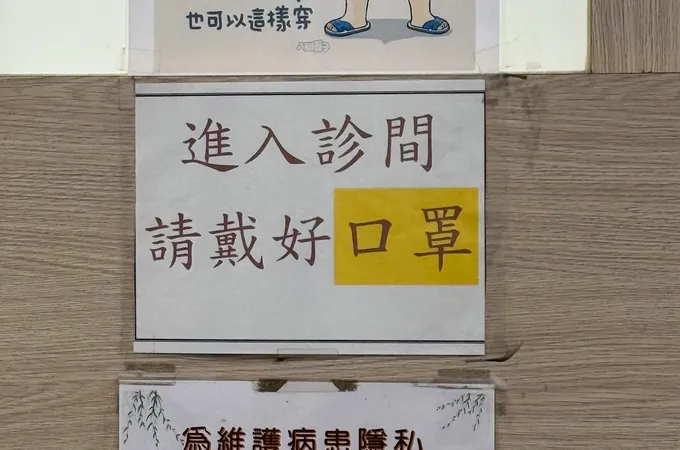 也可以這樣穿
進入診間
請戴好口罩
為維護病患隱私